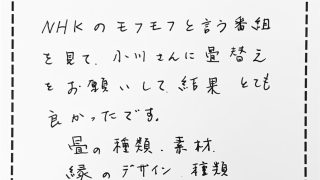 NHKのモフモフと言う番組
を見て、小川さんに畳替え
をお願いして、結果とても
良かったです。
畳の種類、素材、
縁のデザイン、種類